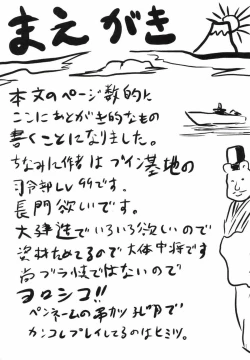 まえがき
本文のページ数的に
ここにあとがき的なもの
書くことになりました。
ちなみに作者はブイン基地の
司令部Lv99です。
長門欲しいです。
大建造でいろいろ欲しいので
資材ためてるので大体中将です
尚ブラ鎮ではないので
ヨロシコ!!
ペンネームの串カツ
でカンコレプレイしてるのはヒミツ。